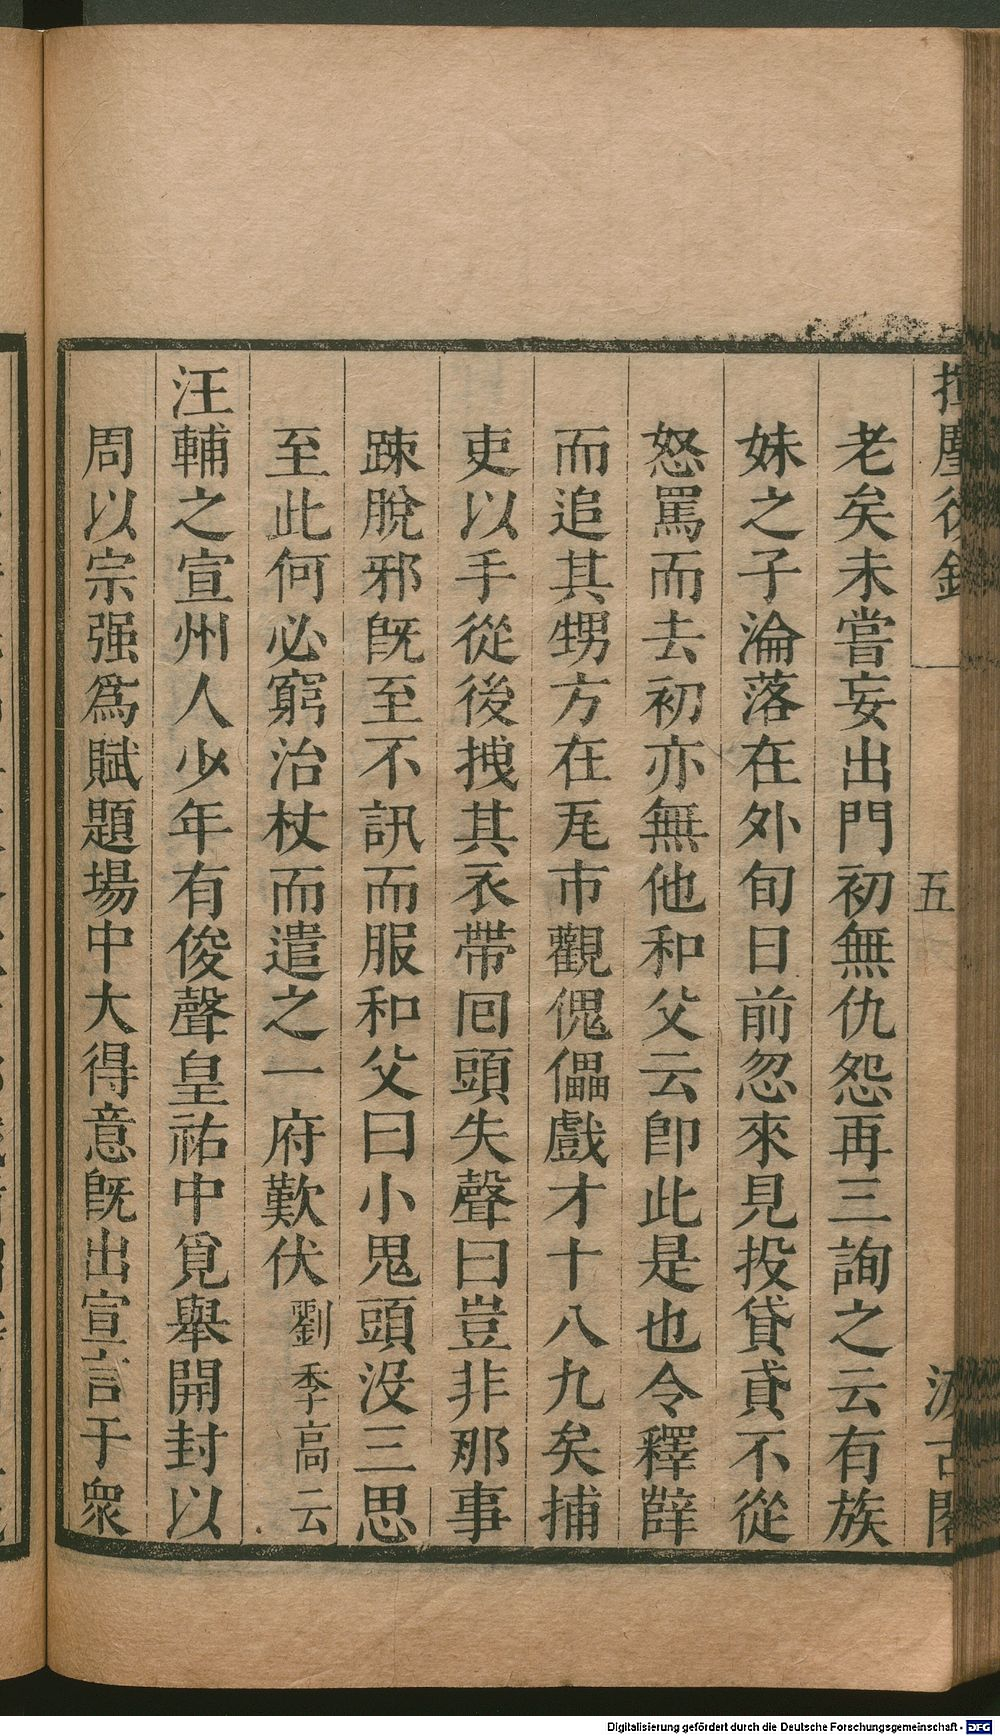 揮麈後錄
五
汲古閣
老矣未嘗妄出門初無仇怨再三詢之云有族
妹之子淪落在外旬日前忽來見投貸貣不從
怒罵而去初亦無他和父云卽此是也令釋薛
而追其甥方在瓦市觀傀儡戲才十八九矣捕
吏以手從後拽其衣帶囘頭失聲曰豈非那事
踈脫邪旣至不訊而服和父曰小鬼頭没三思
至此何必窮治杖而遣之一府歎伏劉季高云
汪輔之宣州人少年有俊聲皇祐中覓舉開封以
周以宗强爲賦題場中大得意旣出宣言于衆
Digitalisierung gefördert durch die Deutsche Forschungsgemeinschaft - DFG